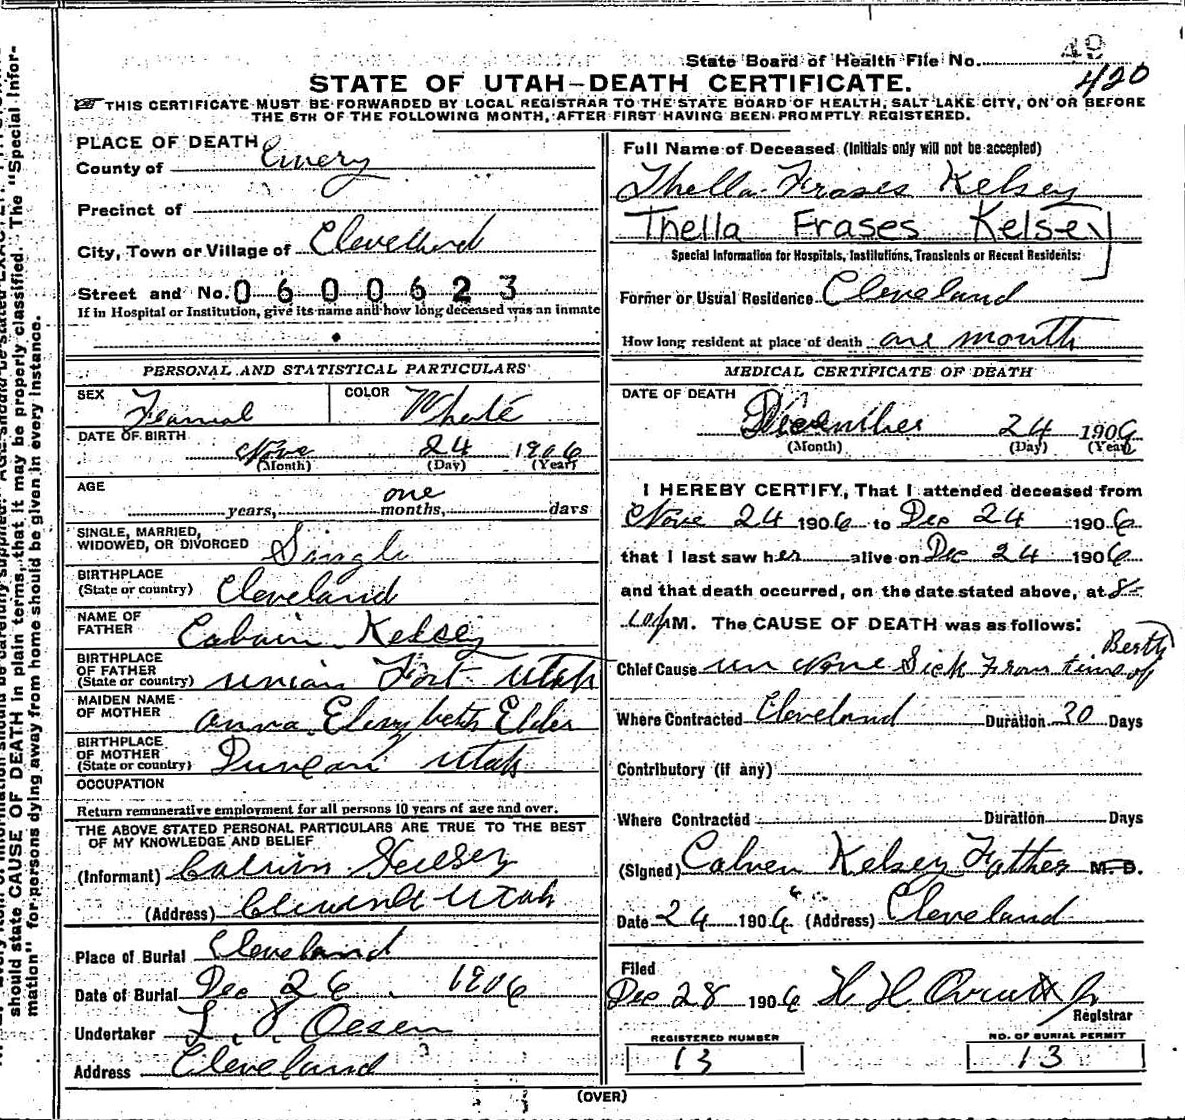 State Board of Health File No. 49
420
STATE OF UTAH—DEATH CERTIFICATE.
THIS CERTIFICATE MUST BE FORWARDED BY LOCAL REGISTRAR TO THE STATE BOARD OF HEALTH, SALT LAKE CITY, ON OR BEFORE
THE 5TH OF THE FOLLOWING MONTH, AFTER FIRST HAVING BEEN PROMPTLY REGISTERED.
PLACE OF DEATH
County of Emery
Precinct of
City, Town or Village of Clevelland
Street and No. 0600623
If in Hospital or Institution, give its name and how long deceased was an inmate
PERSONAL AND STATISTICAL PARTICULARS
SEX Femal
COLOR White
DATE OF BIRTH Nove 24 1906
(Month) (Day) (Year)
AGE
years, one months, days
SINGLE, MARRIED,
WIDOWED, OR DIVORCED Single
BIRTHPLACE
(State or country) Cleveland
NAME OF
FATHER Calvin Kelsey
BIRTHPLACE
OF FATHER
(State or country) union Fort Utah
MAIDEN NAME
OF MOTHER Anna Elizabeth Elder
BIRTHPLACE
OF MOTHER
(State or country) Duncan Utah
OCCUPATION
Return remunerative employment for all persons 10 years of age and over.
THE ABOVE STATED PERSONAL PARTICULARS ARE TRUE TO THE BEST
OF MY KNOWLEDGE AND BELIEF
(Informant) Calvin Kelsey
(Address) Utah
Place of Burial Cleveland
Date of Burial Dec 26 1906
Undertaker L. P. Oesen
Address Cleveland
Full Name of Deceased (Initials only will not be accepted)
Thella Frases Kelsey
Thella Frases Kelsey
Special Information for Hospitals, Institutions, Transients or Recent Residents:
Former or Usual Residence Cleveland
How long resident at place of death one month
MEDICAL CERTIFICATE OF DEATH
DATE OF DEATH
December 24 1906
(Month) (Day) (Year)
I HEREBY CERTIFY, That I attended deceased from
Nove 24 1906 to Dec 24 1906
that I last saw her alive on Dec 24 1906
and that death occurred, on the date stated above, at 8-
10 P M. The CAUSE OF DEATH was as follows:
Chief Cause un None Sick From time of Berth
Where Contracted Cleveland Duration 30 Days
Contributory (if any)
Where Contracted Duration Days
(Signed) Calven Kelsey Father M. D.
Date 24 1906 (Address) Cleveland
Filed
Dec 28 1906 H. H.
Registrar
REGISTERED NUMBER
13
NO. OF BURIAL PERMIT
13
(OVER)
should state CAUSE OF DEATH in plain terms, that it may be properly classified. The "Special Infor-
mation" for persons dying away from home should be given in every instance.